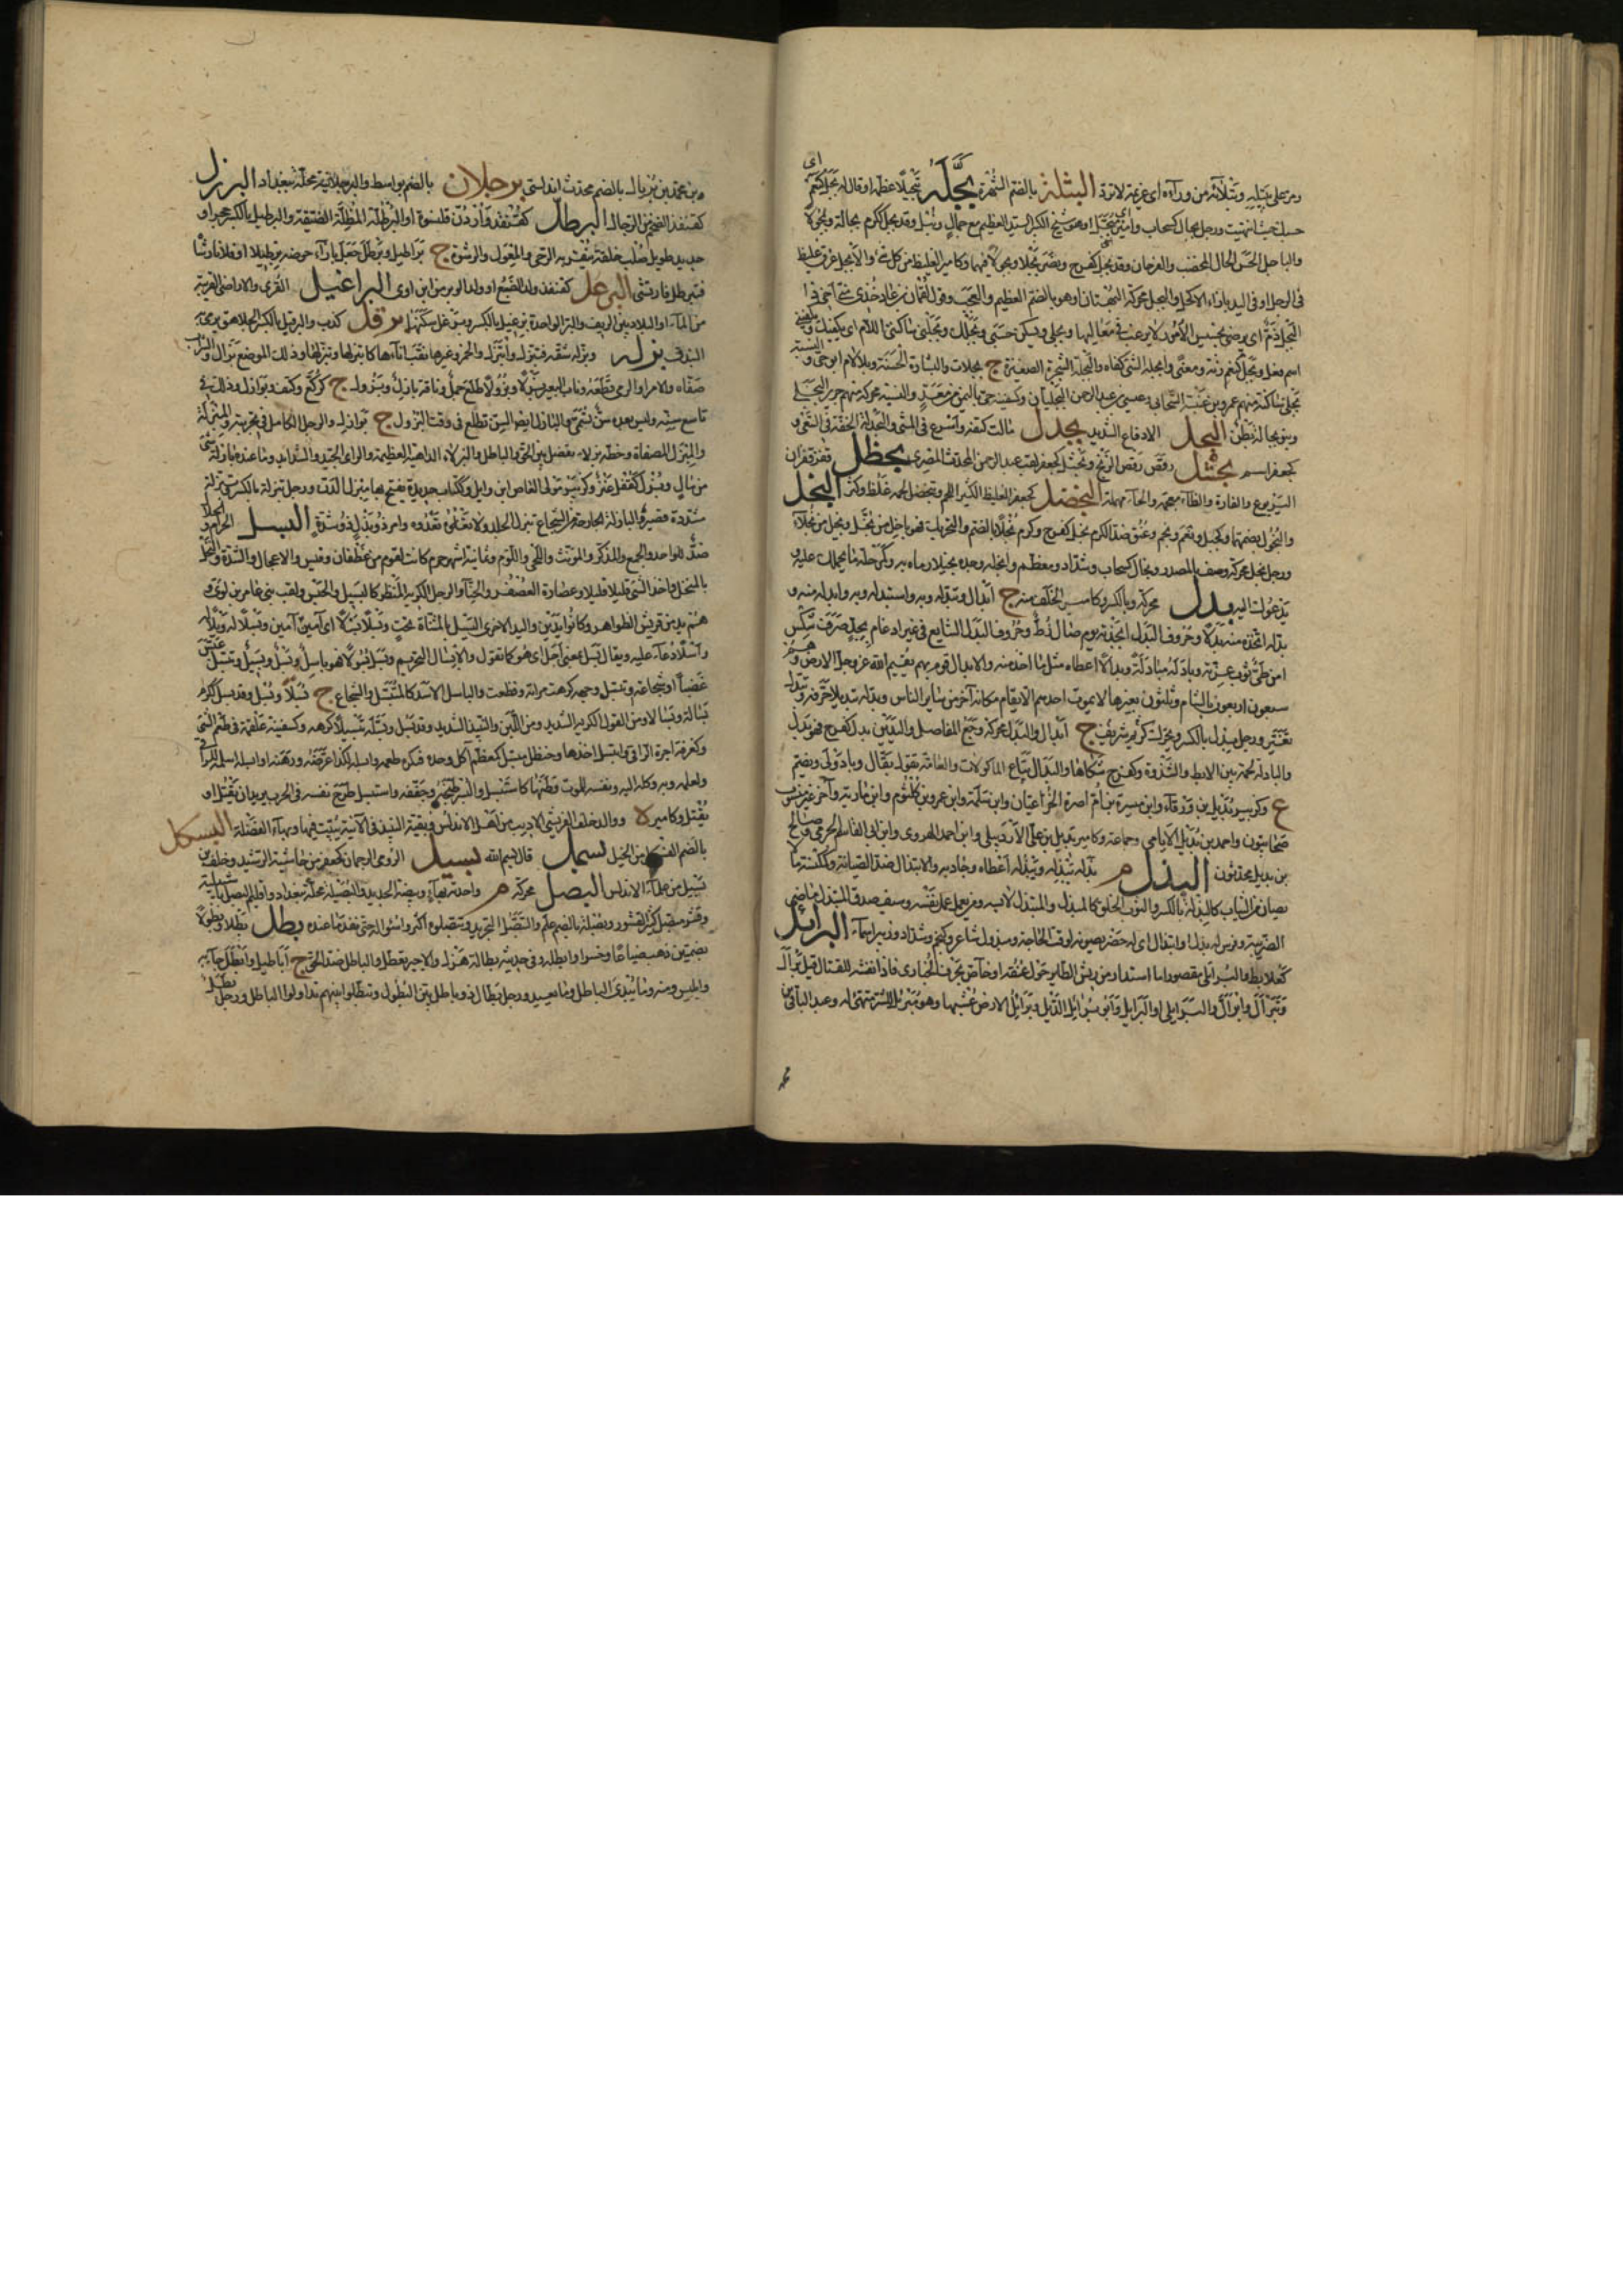 ومر على بتيلة وبتلآء من ورآءه اى عزيمة لا ترد البتلة بالضم الشهرة بجله تبجيلا عظمه او قال له بجل كنعم اى
حسبك حيث انتهيت ورجل بجال كسحاب وامير وهو شيخ الكبير السيد العظيم مع جمال ونبل وقد بجل ككرم بجالة وبجولا
والباجل الحسن الحال المخصب والفرحان وقد بجل كفرح ونصر بجلا وبجولا فيهما وكامير الغليظ من كل شئ والابجل عرق غليظ
فى الرجل او فى اليد بازاء الاكحل والبجل محركة البهتان او هو بالضم العظيم والعجب وقول لقمان بن عاد خذى منى اخى ذا
البجل ذم اى يرضى بخسيس الامور لا يرغب فى معاليها وبجلى ويسكن حسبى وبجلك وبجلنى ساكنتى اللام اى يكفيك ويكفينى
اسم فعل وبجل كنعم زنة ومعنى وابجله الشئ كفاه والبجلة الشجرة الصغيرة ج بجلات والشارة الحسنة وبلا لام ابو حى والنسبة
بجلى ساكنة منهم عمرو بن عنبسة الصحابى وعيسى بن عبد الرحمن البجليان وكسفينة حى باليمن من معد والنسبة محركة منهم جرير البجلى
وبنو بجالة بطن البحل الادقاع الشديد بحدل مالت كتفه واسرع فى المشى والبحدلة الخفة فى السعى و
كجعفر اسم بحشل رقص رقص الزنج وبحشل كجعفر لقب احمد بن عبد الرحمن المحدث المصرى بحظل قفز قفزان
اليربوع والفارة والظاء معجمة والحاء مهملة البخصل كجعفر الغليظ الكثير اللحم وتبخصل لحمه غلظ وكثر البخل
والبخول بضمهما وكجبل ونجم وعنق ضد الكرم بخل كفرح وكرم بخلا بالضم والتحريك فهو باخل من بخل وبخيل من بخلاء
ورجل بخل محركة وصف بالمصدر وبخال كسحاب وشداد ومعظم وابخله وجده بخيلا وبخله رماه به وكمرحلة ما يحملك عليه و
يدعوك اليه بدل محركة وبالكسر وكامير الخلف منه ج ابدال وتبدله وبه واستبدله وبه وابدله منه و
بدله اتخذه منه بدلا وحروف البدل انجدته يوم صال زط وحروف البدل الشايع فى غير ادغام بجد صرف شكس
امن طى ثوب عزته وبادله مبادلة وبدالا اعطاه مثل ما اخذ منه والابدال قوم بهم يقيم الله عز وجل الارض وهم
سبعون اربعون بالشام وثلثون بغيرها لا يموت احدهم الا يقام مكانه آخر من سائر الناس وبدله تبديلا حرفه وتبدل
تغير ورجل بدل بالكسر ويحرك كريم شريف ج ابدال والبدل محركة وجع المفاصل واليدين بدل كفرح فهو بدل
والبادلة لحمة بين الابط والثندوة وكفرح شكاها والبدال بياع الماكولات والعامة تقول بقال وبادولى ويضم
ع وكزبير بديل بن ورقاء وابن ميسرة بن ام اصرم الخزاعيان وابن سلمة وابن عمرو بن كلثوم وابن مارية وآخر غير منسوب
صحابيون واحمد بن بديل الايامى وجماعة وكامير بديل بن على الاردبيلى وابن احمد الهروى وابن ابى القاسم الخوى وصالح
بن بديل محدثون البذل م بذله يبذله ويبذله اعطاه وجاد به والابتذال ضد الصيانة وكمكنسة ما لا
يصان من الثياب كالبذلة بالكسر والثوب الخلق كالمبذل والمتبذل لابسه ومن يعمل عمل نفسه وسيف صدق المتبذل ماضى
الضريبة وفرس له بذل وابتذال اى له حضر يصونه لوقت الحاجة ومبذول شاعر وكنجم وشداد وزبير اسماء البرائل
كعلابط والبرائلى مقصورا ما استدار من ريش الطائر حول عنقه او خاص بعرف الحبارى فاذا نفشه للقتال قيل برأل
وتبرأل وابرأل والبرائلى او البرائل وابو برائل الديك وبرائل الارض عشبها وهو مبرئل للشر متهيئ له وعبد الباقى بن
محمد بن بريال بالضم محدث اندلسى برجلان بالضم بواسط والبرجلانية محلة ببغداد البرزل
كقنفذ الضخم من الرجال البرطل كقنفذ واردن قلنسوة او البرطلة المظلة الضيقة والبرطيل بالكسر حجر او
حديد طويل صلب خلقة ينقر به الرحى والمعول والرشوة ج براطيل وبرطل جعل بازآء حوضه برطيلا او فلانا رشاه
فتبرطل فارتشى البرعل كقنفذ ولد الضبع او ولد الوبر من ابن اوى البراغيل القرى والاراضى القريبة
من الماء او البلاد بين الريف والبر الواحدة برغيل بالكسر وبرغل سكنها برقل كذب والبرقيل بالكسر الجلاهق يرمى به
البندق بزل وبزله شقه فتبزل وانبزل والخمر وغيرها نقب انآءها كابتزلها وتبزلها وذلك الموضع بزال والشراب
صفاه والامر او الراى قطعه وناب البعير بزلا وبزولا طلع جمل وناقة بازل وبزول ج كركع وكتب وبوازل وذلك فى
تاسع سنيه وليس بعده سن تسمى والبازل ايضا السن تطلع فى وقت البزول ج بوازل والرجل الكامل فى تجربته والمبزل
والمبزلة المصفاة وخطة بزلاء تفصل بين الحق والباطل والبزلاء الداهية العظيمة والراى الجيد والشدائد وما عنده بازلة شئ
من مال وبزل كقفل عنز وكزبير مولى العاص ابن وايل وككتاب حديدة يفتح بها مبزل الدن ورجل تبزلة بالكسر
مشددة قصير والبازلة الحارصة من الشجاج تبزل الجلد ولا تعدوه وامر ذو بزل ذو شدة البسل الحرام والحلال
ضد للواحد والجمع والمذكر والمؤنث واللحى واللوم وثمانية اشهر حرم كانت لقوم من غطفان وقيس والاعجال والشدة والنخل
بالمنخل واخذ الشئ قليلا قليلا وعصارة العصفر والحناء والرجل الكريه المنظر كالبسيل والحبس ولقب بنى عامر بن لؤى و
هم يد من قريش الظواهر وكانوا يدين واليد الاخرى اليسل بالمثناة تحت وبسلا بسلا اى آمين آمين وبسلا له ويلا له
وابسلا دعاء عليه ويقال بسل بمعنى اجل اى هو كما تقول والابسال التحريم وبسل بسولا فهو باسل وبسل وبسيل وتبسل عبس
غضبا او شجاعة وتبسل وجهه كرهت مرآته وفظعت والباسل الاسد كالمتبسل والشجاع ج بسلآء وبسل وقد بسل ككرم
بسالة وبسالا ومن القول الكريه الشديد ومن اللبن والنبيذ الشديد وقد بسل وبسله تبسيلا كرهه وكسفينة علقمة فى طعم الشئ
وكغرفة اجرة الراقى وابتسل اخذها وحنظل مبسل كمعظم اكل وحده فكره طعمه وابسله لكذا عرضه ورهنه او اسلمه للهلكة
ولعمله وبه وكله اليه ونفسه للموت وطنها كاستبسل والبسر طبخه وجففه واستبسل طرح نفسه فى الحرب يريد ان يقتل او
يقتل وكامير ة ووالد خلف القريشى الاديب من اهل الاندلس وبقية النبيذ فى الآنية تبيت فيها وبهآء الفضلة البسكل
بالضم الفسكل من الخيل بسمل قال بسم الله بسيل الرومى الترجمان كجعفر من حاشية الرشيد وخلف بن
بسيل من علمآء الاندلس البصل محركة م واحدته بهآء وبيضة الحديد والبصيلة محلة ببغداد واقليم البصل باشبيلية
وقشر متبصل كثير القشور وبصيلة بالضم علم والتبصل التجريد وتبصلوه اكثروا سؤاله حتى نفد ما عنده وبطل بطلا وبطولا
بضمتين ذهب ضياعا وخسرا وابطله وفى حديثه بطالة هزل والاجير تعطل والباطل ضد الحق ج اباطيل وابطل جآء به
وابليس ومنه وما يبدئ الباطل وما يعيد ورجل بطال ذو باطل بين البطول وتبطلوا بينهم تداولوا الباطل ورجل بطل